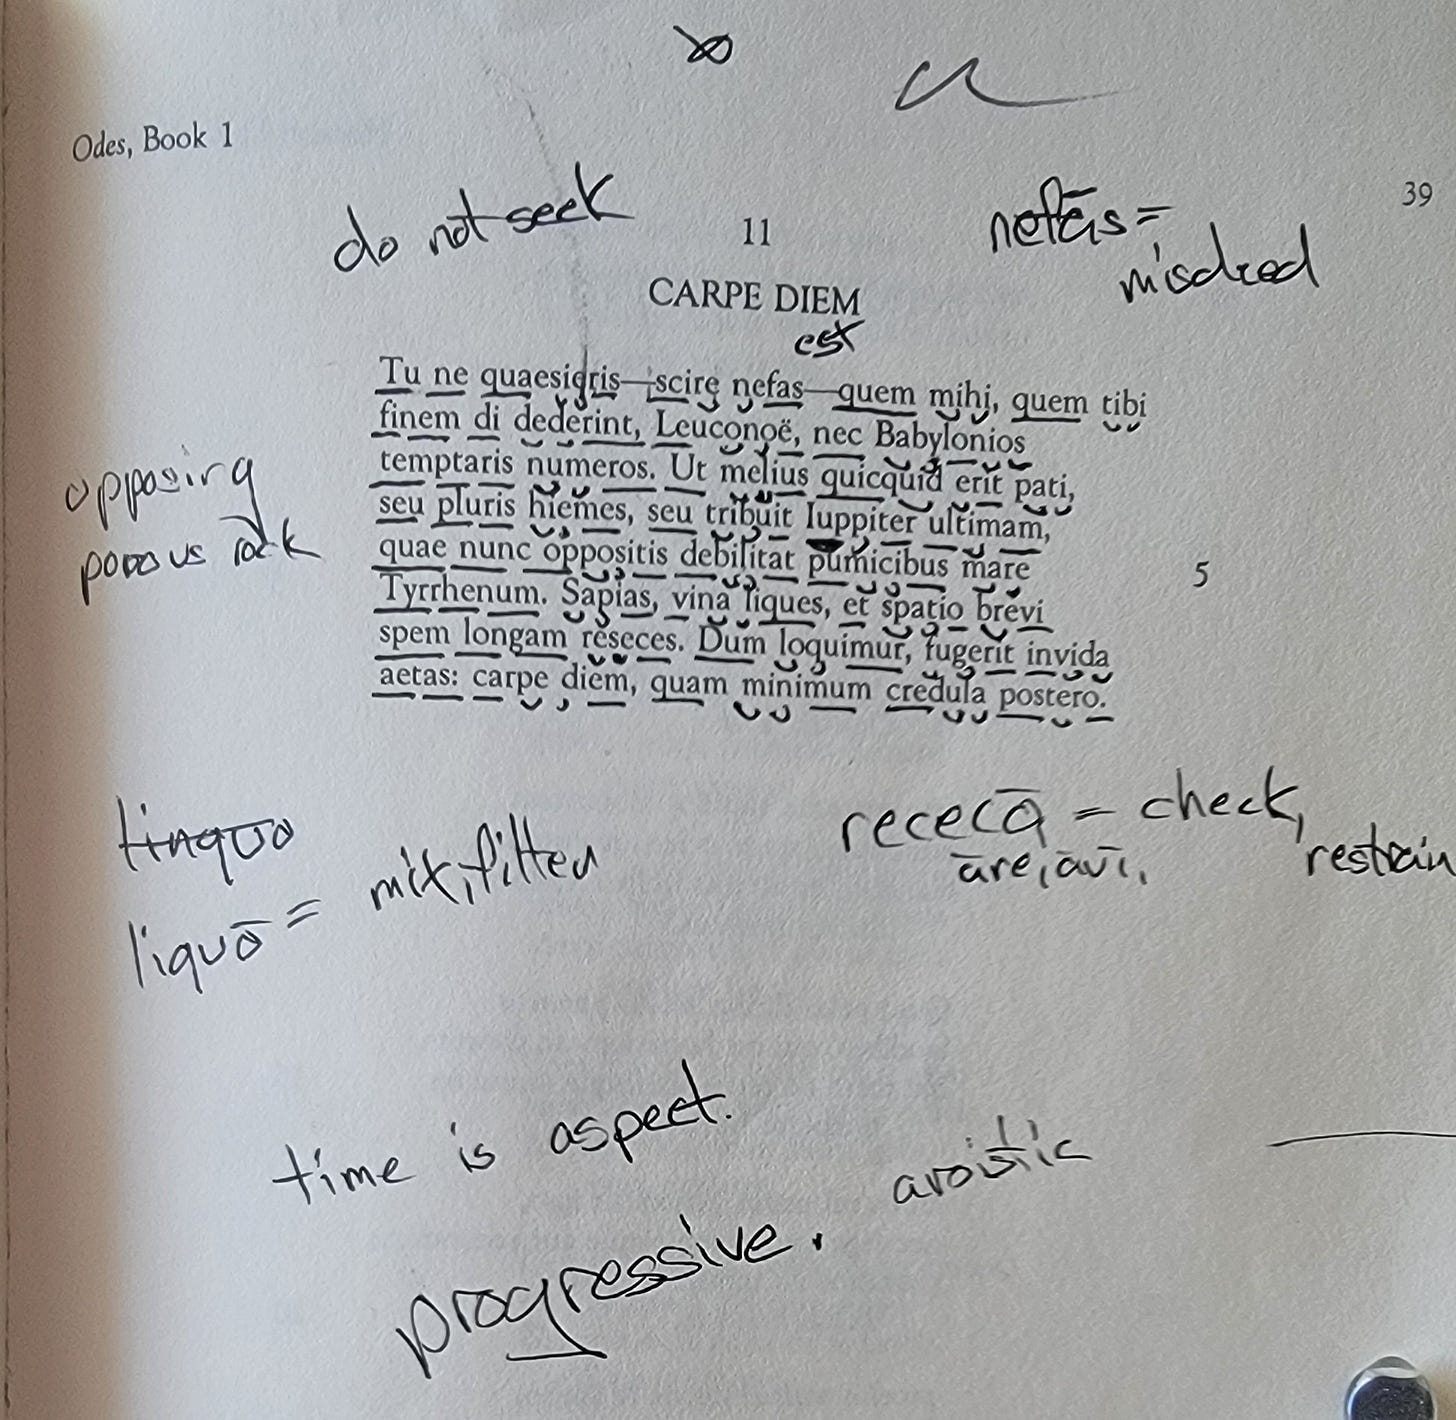 Odes, Book 1
39
do not seek
11
nefās =
misdeed
CARPE DIEM
est
Tu ne quaesieris—scire nefas—quem mihi, quem tibi
finem di dederint, Leuconoë, nec Babylonios
temptaris numeros. Ut melius quicquid erit pati,
seu pluris hiemes, seu tribuit Iuppiter ultimam,
quae nunc oppositis debilitat pumicibus mare
5
Tyrrhenum. Sapias, vina liques, et spatio brevi
spem longam reseces. Dum loquimur, fugerit invida
aetas: carpe diem, quam minimum credula postero.
opposing
porous rock
linquo
liquō = mix, filter
rececā = check,
āre, āvī,
restrain
time is aspect.
aroistic
progressive.